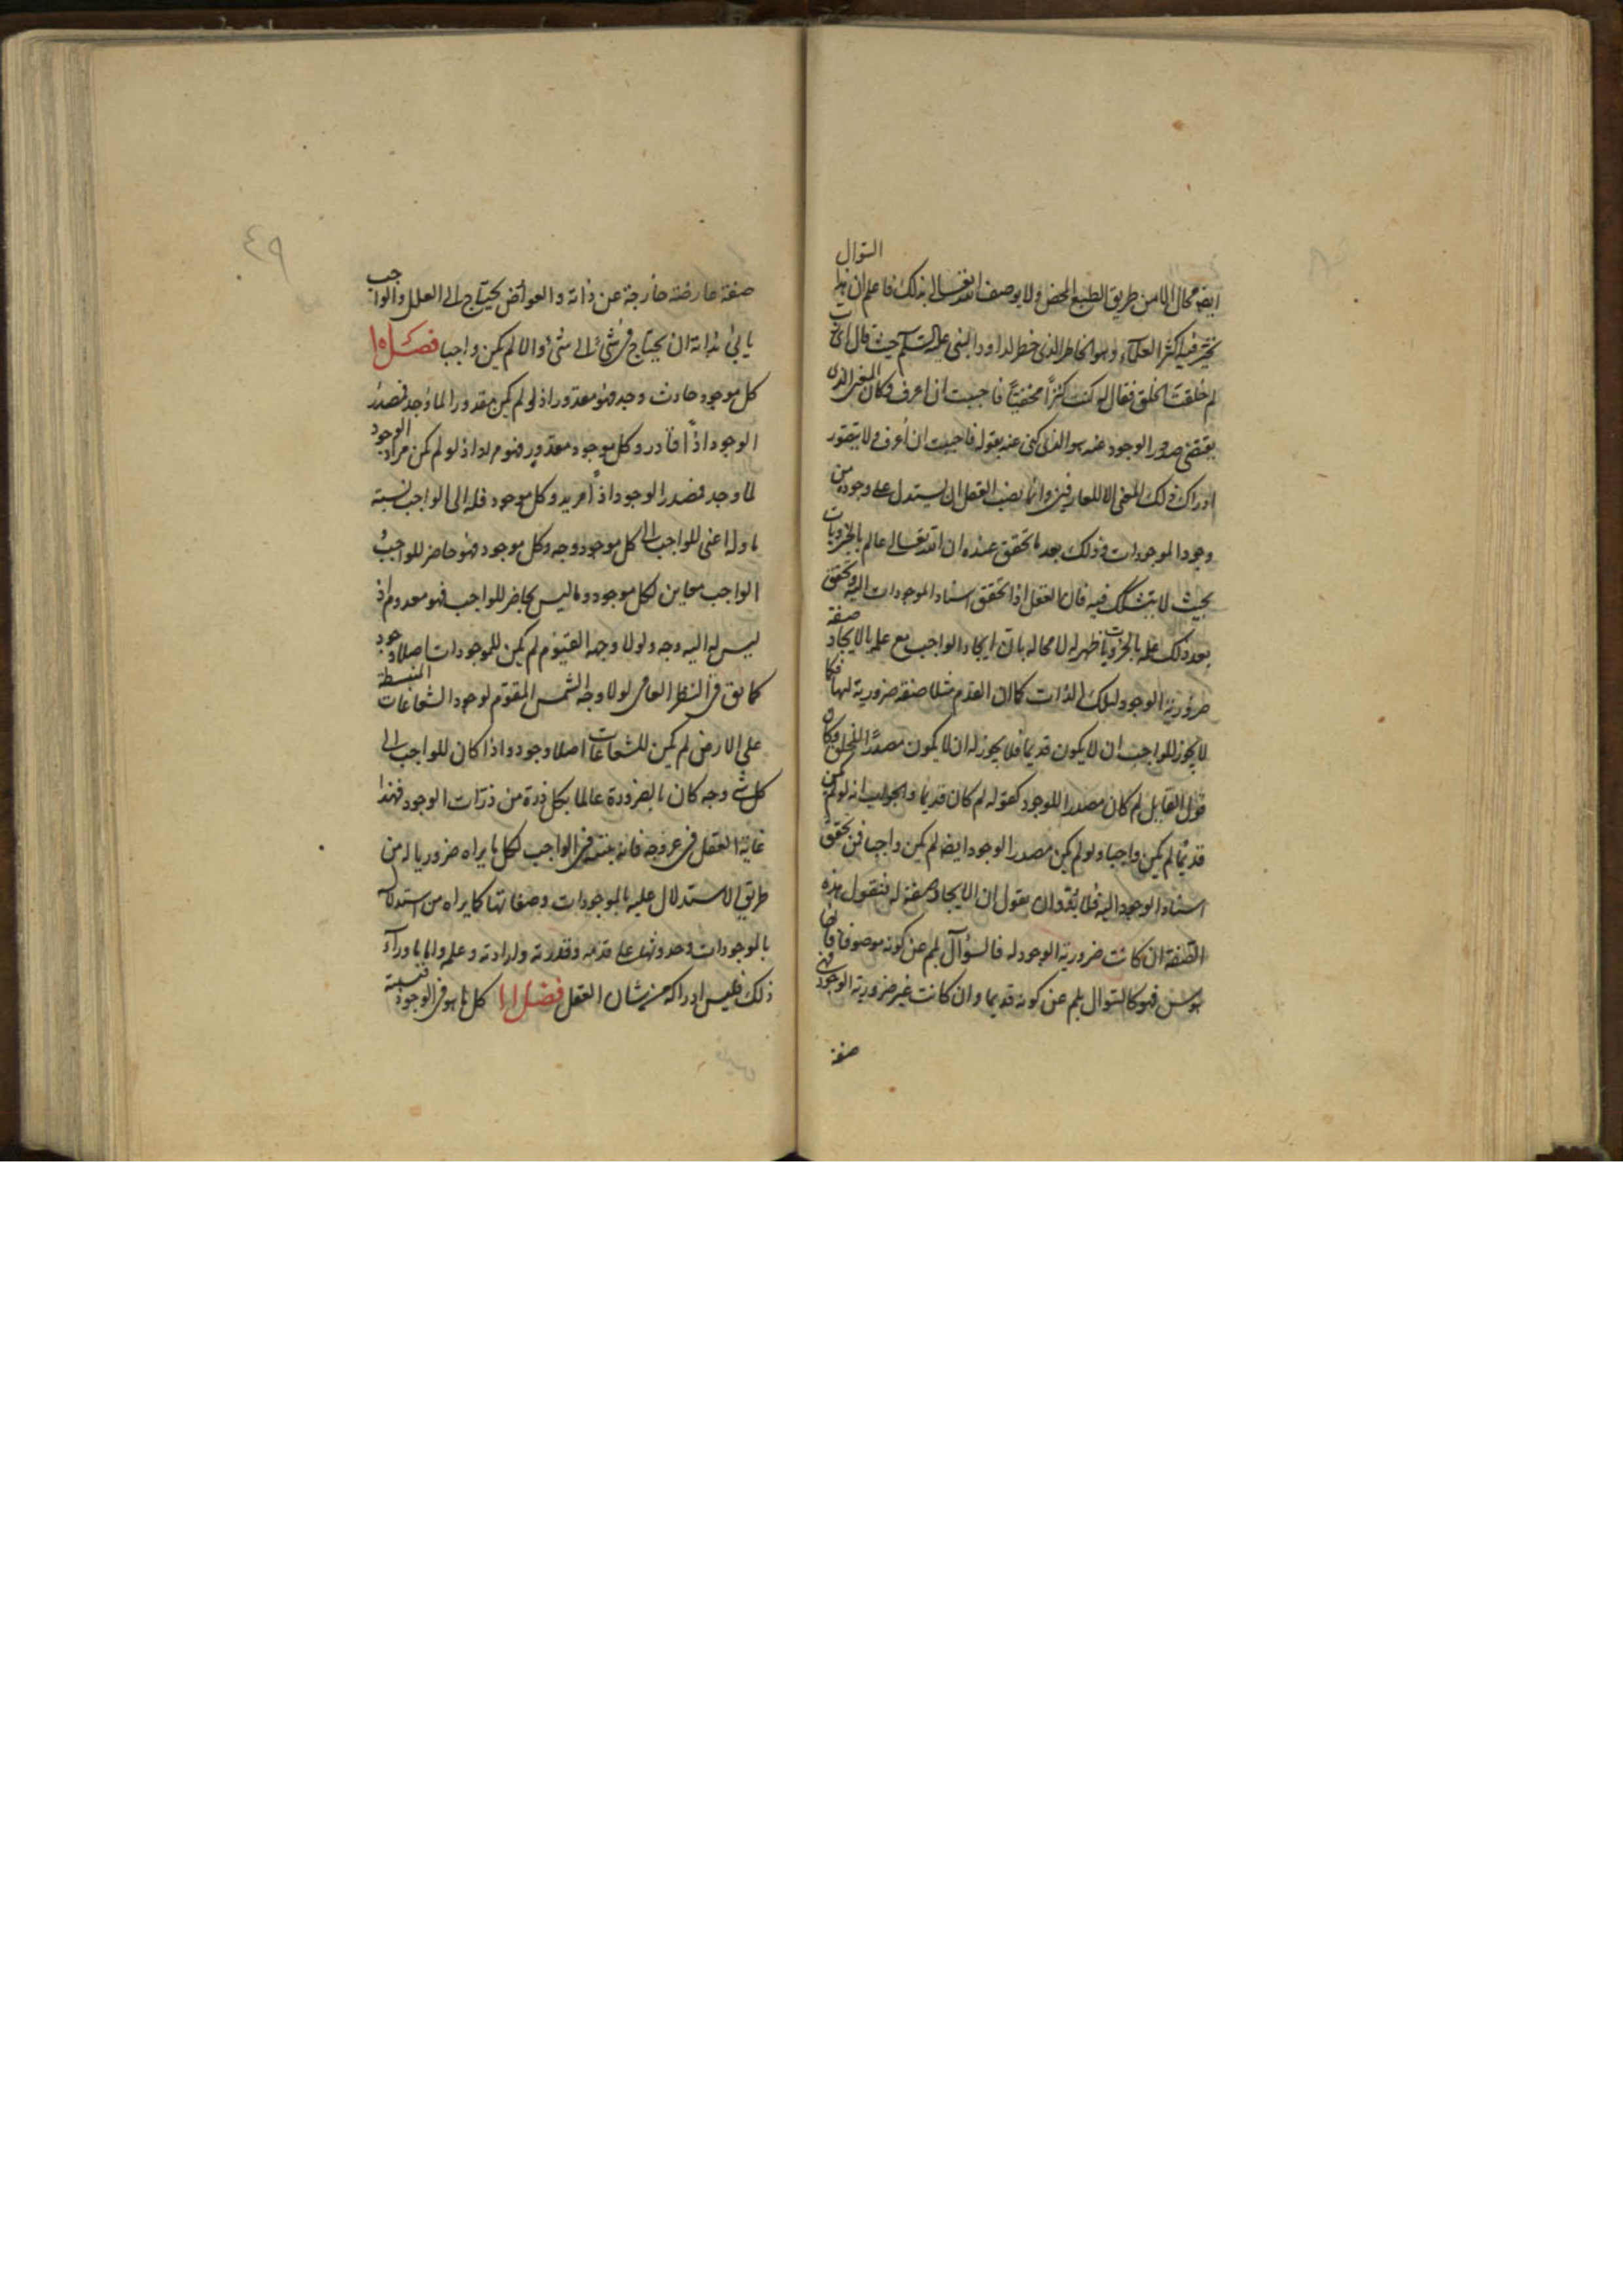 ايضا محال الا من طريق الطبع المحض ولا يوصف الله تعالى بذلك فاعلم ان هذا السؤال
تحير فيه اكثر العلماء وهو الخاطر الذى خطر لداود النبى عليه السلم حيث قال اى رب
لم خلقت الخلق فقال له كنت كنزا مخفيا فاحببت ان اعرف وكان المعنى الذى
يقتضى صدور الوجود عنه هو الذى كنى عنه بقوله فاحببت ان أعرف ولا يتصور
ادراك ذلك المعنى الا للعارفين وانما نصيب العقل ان يستدل على وجوده من
وجود الموجودات وذلك بعد ما تحقق عنده ان الله تعالى عالم بالجزويات
بحيث لا يتشكك فيه فان العقل اذا تحقق اسناد الموجودات اليه وتحقق
بعد ذلك علمه بالجزويات ظهر له لا محالة بان ايجاد الواجب مع علمه بالايجاد صفة
ضرورية الوجود لتلك الذات كما ان القدم مثلا صفة ضرورية لها فكما
لا يجوز للواجب ان لا يكون قديما فلا يجوز له ان لا يكون مصدرا للخلق فكان
قول القايل لم كان مصدرا للوجود كقوله لم كان قديما والجواب انه لو لم يكن
قديما لم يكن واجبا ولو لم يكن مصدر الوجود ايضا لم يكن واجبا فمن تحقق
اسناد الوجود اليه فلا بد وان يقول ان الايجاد صفة له فنقول هذه
الصفة ان كانت ضرورية الوجود له فالسؤال بلم عن كونه موصوفا بها
هوس فهو كالسؤال بلم عن كونه قديما وان كانت غير ضرورية الوجود فهى
صفة
٤٩
صفة عارضة خارجة عن ذاته والعوارض يحتاج الى العلل والواجب
يابى بذاته ان يحتاج فى شئ الى شئ والا لم يكن واجبا فصل
كل موجود حادث وجد فهو مقدور اذ لو لم يكن مقدورا لما وجد فمصدر
الوجود اذًا قادر وكل موجود مقدور فهو مراد اذ لو لم يكن مراد الوجود
لما وجد فمصدر الوجود اذًا مريد وكل موجود فله الى الواجب نسبة
ما وله اعنى للواجب الى كل موجود وجه وكل موجود فهو حاضر للواجب
الواجب معاين لكل موجود وما ليس بحاضر للواجب فهو معدوم اذ
ليس له اليه وجه ولولا وجه القيوم لم يكن للموجودات اصلا وجود
كما يق فى النظر العامى لولا وجه الشمس المقوم لوجود الشعاعات المنبسطة
على الارض لم يكن للشعاعات اصلا وجود واذا كان للواجب الى
كل شى وجه كان بالضرورة عالما بكل ذرة من ذرات الوجود فهذا
غاية العقل فى عروجه فانه ينتهى فى الواجب لكل ما يراه ضروريا له من
طريق الاستدلال عليه بالموجودات وصفاتها كما يراه من استدلاله
بالموجودات وحدوثها على قدمه وقدرته وارادته وعلمه واما ما وراء
ذلك فليس ادراكه من شان العقل فصل كل ما هو فى الوجود فنسبة